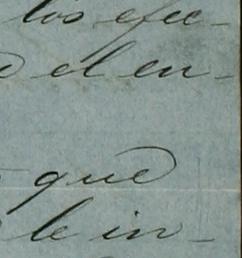 los efec-
el en-
que
le in-